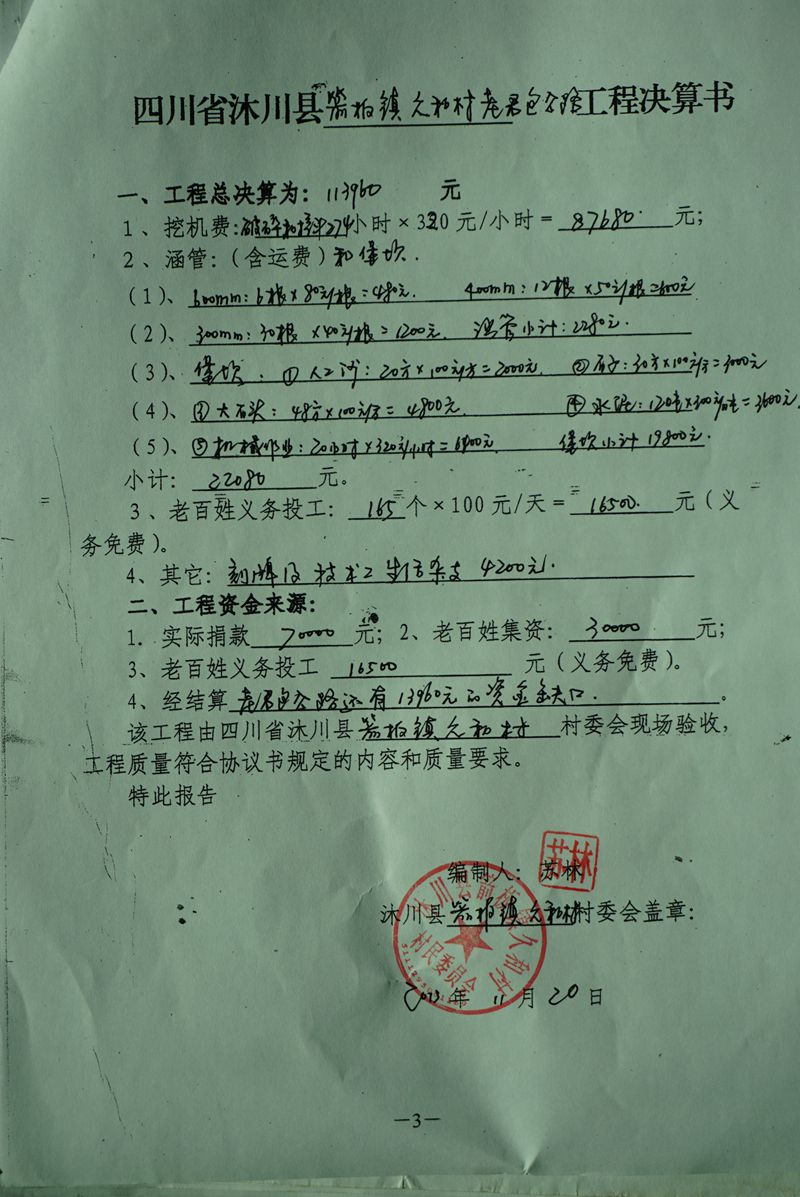 四川省沐川县箭板镇久和村老君包公路工程决算书
一、工程总决算为：113960 元
1、挖机费：破碎和挖平274小时×320元/小时＝87680元；
2、涵管：（含运费）和堡坎．
（1）、600mm：6根×80元/根＝480元． 400mm：12根×50元/根＝600元
（2）、300mm：30根×40元/根＝1200元． 涵管小计：2280元．
（3）、堡坎．①人工沙：20方×100元/方＝2000元． ②石子：30方×100元/方＝3000元
（4）、③大石头：48方×100元/方＝4800元． ④水泥：12吨×300元/吨＝3600元
（5）、⑤机械作业：20小时×320元/小时＝6400元． 堡坎小计19800元．
小计：22080元。
3、老百姓义务投工：165个×100元/天＝16500．元（义
务免费）。
4、其它：刻牌及技术工生活杂支4200元．
二、工程资金来源：
1．实际捐款70000元；2、老百姓集资：30000元；
3、老百姓义务投工16500元（义务免费）。
4、经结算老君包公路还有13960元的资金缺口．。
该工程由四川省沐川县箭板镇久和村村委会现场验收，
工程质量符合协议书规定的内容和质量要求。
特此报告
编制人：苏林
苏林
沐川县箭板镇久和村村委会盖章：
沐川县箭板镇久和村
村民委员会
年11月20日
—3—